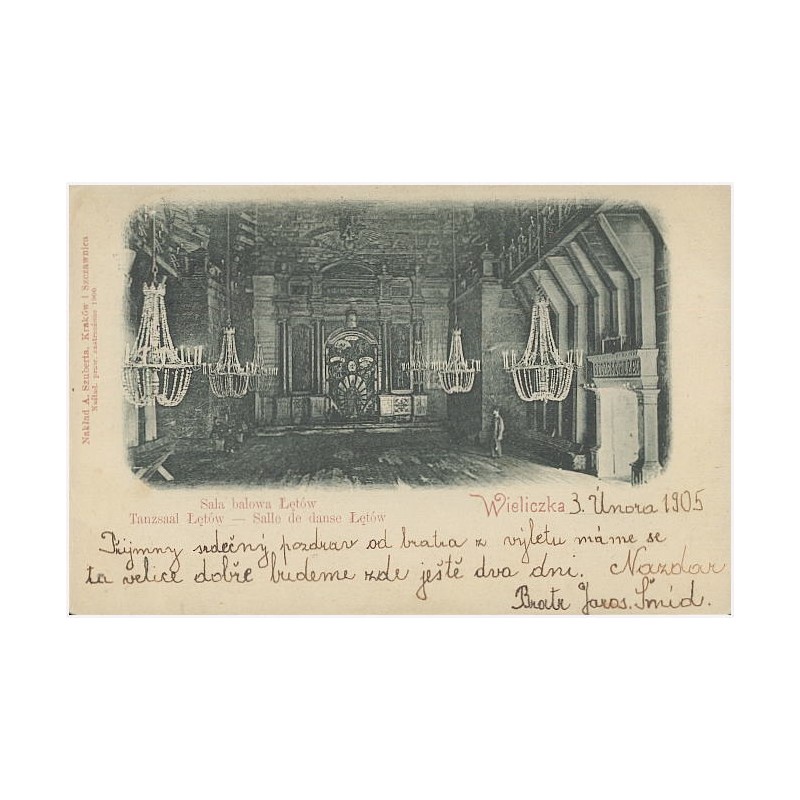 Nakład A. Szuberta, Kraków i Szczawnica
Naślad. praw. zastrzeżone 1900.
Sala balowa Łętów
Tanzsaal Łętów — Salle de danse Łętów
Wieliczka 3. Února 1905
Přijmny srdečný pozdrav od bratra z výletu máme se
ta velice dobře budeme zde ještě dva dni. Nazdar
Bratr Jaros. Šmíd.